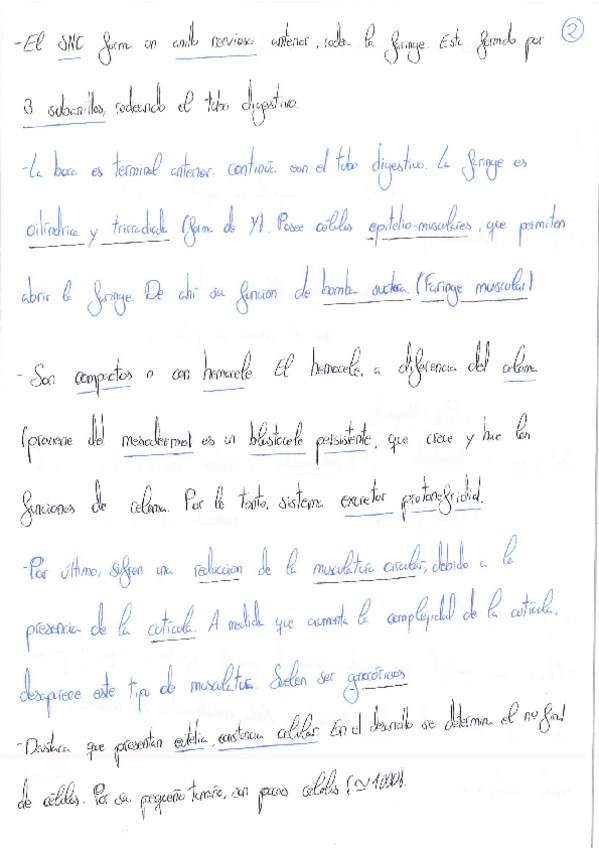 2
-El SNC forma un anillo nervioso anterior, rodea la faringe. Esta formado por
3 subanillos, rodeando el tubo digestivo.
-La boca es terminal anterior. continúa con el tubo digestivo. La faringe es
cilíndrica y trirradiada (forma de Y). Posee células epitelio-musculares, que permiten
abrir la faringe. De ahí su función de bomba suctora. (Faringe muscular)
- Son compactos o con hemocele. El hemocele, a diferencia del celoma
(proviene del mesodermo) es un blastocele persistente, que crece y hace las
funciones de celoma. Por lo tanto, sistema excretor protonefridial.
-Por último, sufren una reducción de la musculatura circular, debido a la
presencia de la cutícula. A medida que aumenta la complejidad de la cutícula,
desaparece este tipo de musculatura. Suelen ser gonocóricos
-Destaca que presentan eutelia, constancia celular. En el desarrollo se determina el nº final
de células. Por su pequeño tamaño, son pocas células (≃1000).